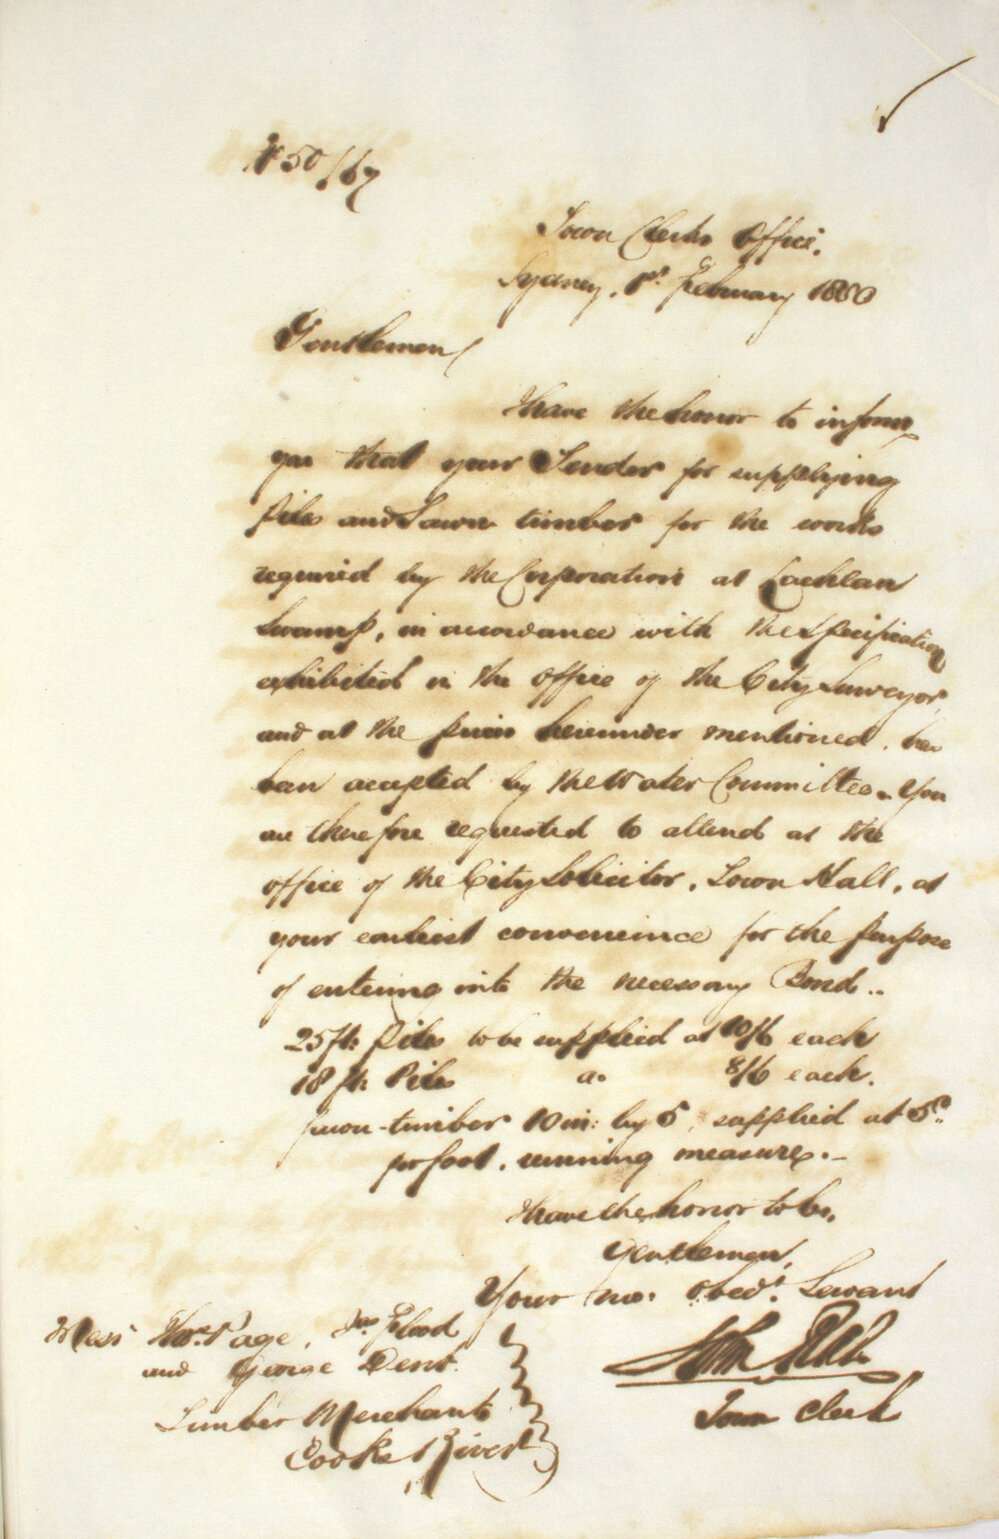 50/67
Town Clerks Office.
Sydney, 1st. February 1850
Gentlemen
I have the honor to inform
you that your Tender for supplying
Piles and Sawn timber for the works
required by the Corporation at Lachlan
Swamp, in accordance with the Specification
exhibited in the office of the City Surveyor,
and at the prices hereunder mentioned, has
been accepted by the Water Committee. You
are therefore requested to attend at the
office of the City Solicitor, Town Hall, at
your earliest convenience for the purpose
of entering into the necessary Bond..
25 ft: Piles to be supplied at 10/6 each
18 ft Piles do 8/6 each.
Sawn timber 10 in: by 5, supplied at 5d..
per foot. running measure.-
I have the honor to be,
Gentlemen,
Your mo. obedt. Servant
John
Town Clerk
Messrs Page, Jas Flood
and George Dent.
Timber Merchants
Cooks River